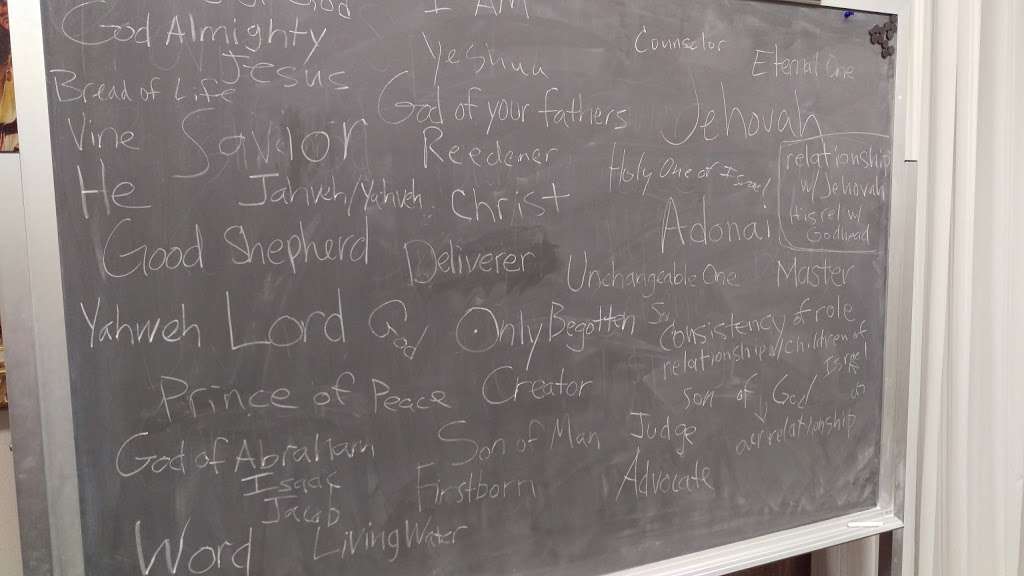 God
I AM
God Almighty
Jesus
Bread of Life
Vine
Savior
He
Jahveh/Yahveh
Good Shepherd
Yahweh
Lord
God
Prince of Peace
God of Abraham
Isaac
Jacob
Word
Living Water
Yeshua
God of your fathers
Reedemer
Christ
Deliverer
Only Begotten
Creator
Son of Man
Firstborn
Counselor
Eternal One
Jehovah
Holy One of Israel
Adonai
Unchangeable One
Master
relationship
w/ Jehovah
His rel w/
Godhead
Consistency of role
relationship w/ children of
son of God
our relationship
Judge
Advocate